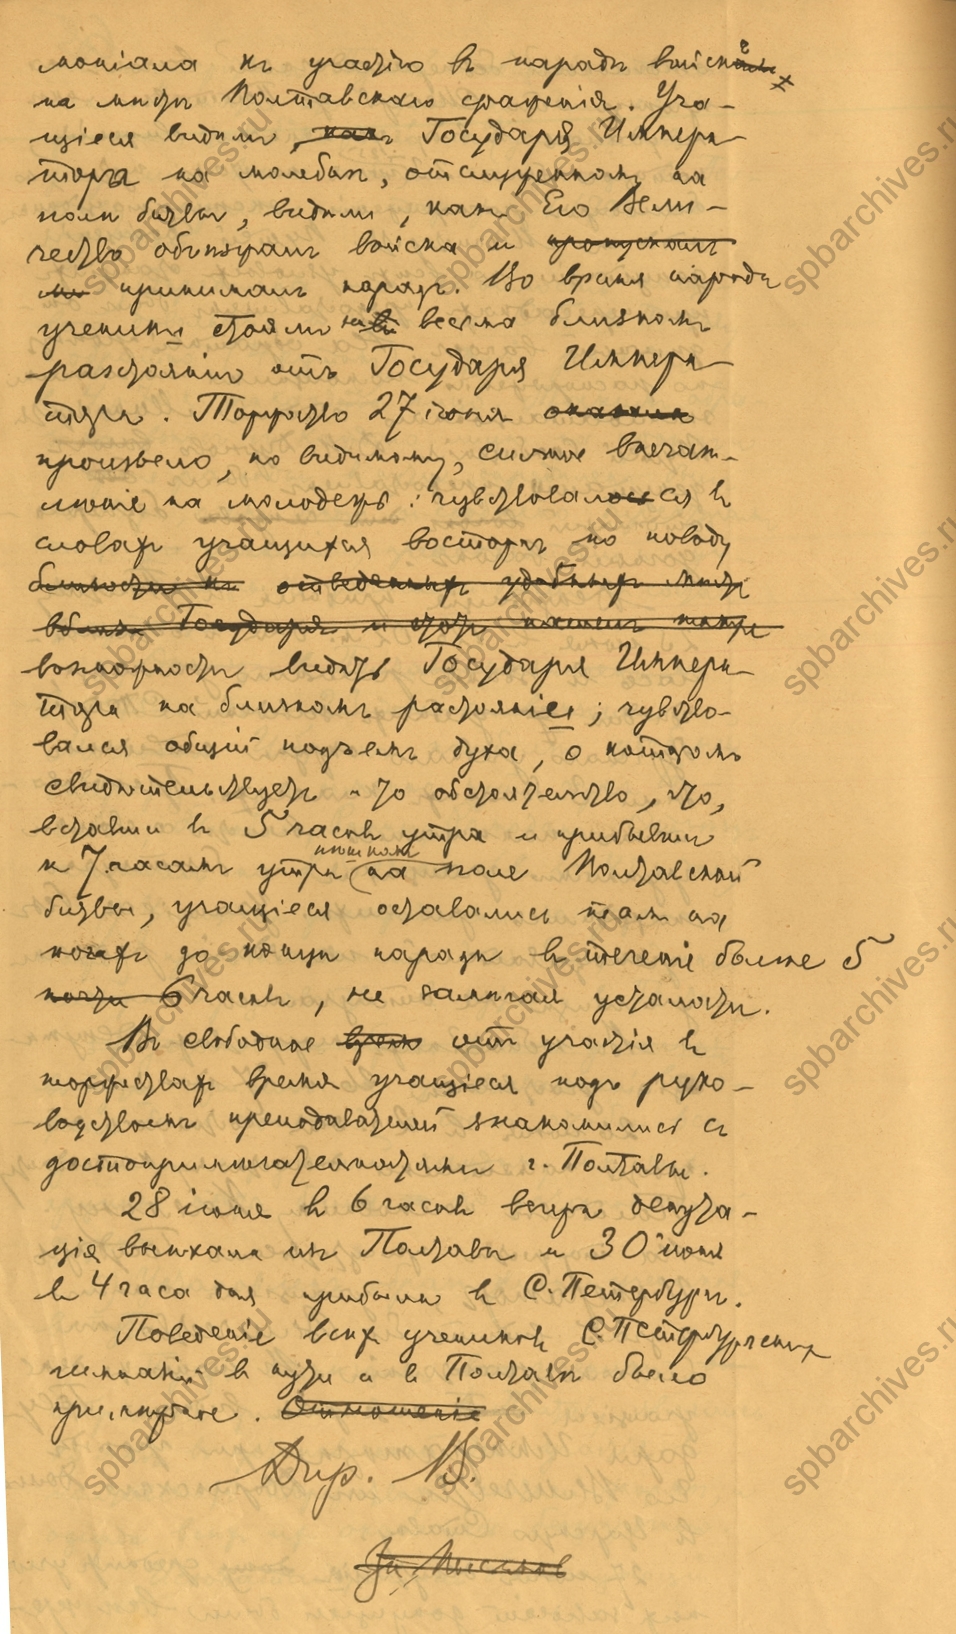 моніала къ участію въ парадѣ войскъ
на мѣстѣ Полтавскаго сраженія. Уча-
щіеся видѣли, какъ Государя Импера-
тора на молебнѣ, отслуженномъ на
полѣ битвы, видѣли, какъ Его Вели-
чество объѣзжалъ войска и пропускалъ
принималъ парадъ. Во время парада
ученики стояли на въ весьма близкомъ
разстояніи отъ Государя Импера-
тора. Торжество 27 іюня оказало
произвело, по видимому, сильное впечат-
лѣніе на молодежь: чувствовался въ
словахъ учащихся восторгъ по поводу
близости къ отведеннымъ удобнымъ мѣста
вблизи Государя и
возможности видѣть Государя Импера-
тора на близкомъ разстояніи; чувство-
вался общій подъемъ духа, о которомъ
свидѣтельствуетъ и то обстоятельство, что,
вставши въ 5 часовъ утра и прибывши
къ 7 часамъ утра пѣшкомъ на поле Полтавской
битвы, учащіеся оставались тамъ на
ногахъ до конца парада въ теченіе болѣе 5
почти 6 часовъ, не замѣчая усталости.
Въ свободное время отъ участія въ
торжествахъ время учащіеся подъ руко-
водствомъ преподавателей знакомились съ
достопримѣчательностями г. Полтавы.
28 іюня въ 6 часовъ вечера депута-
ція выѣхала изъ Полтавы и 30 іюня
въ 4 часа дня прибыла въ С.Петербургъ.
Поведеніе всѣхъ учениковъ С.Петербургскихъ
гимназій въ пути и въ Полтавѣ было
примѣрное. Отношеніе
Дир. В.
spbarchives.ru